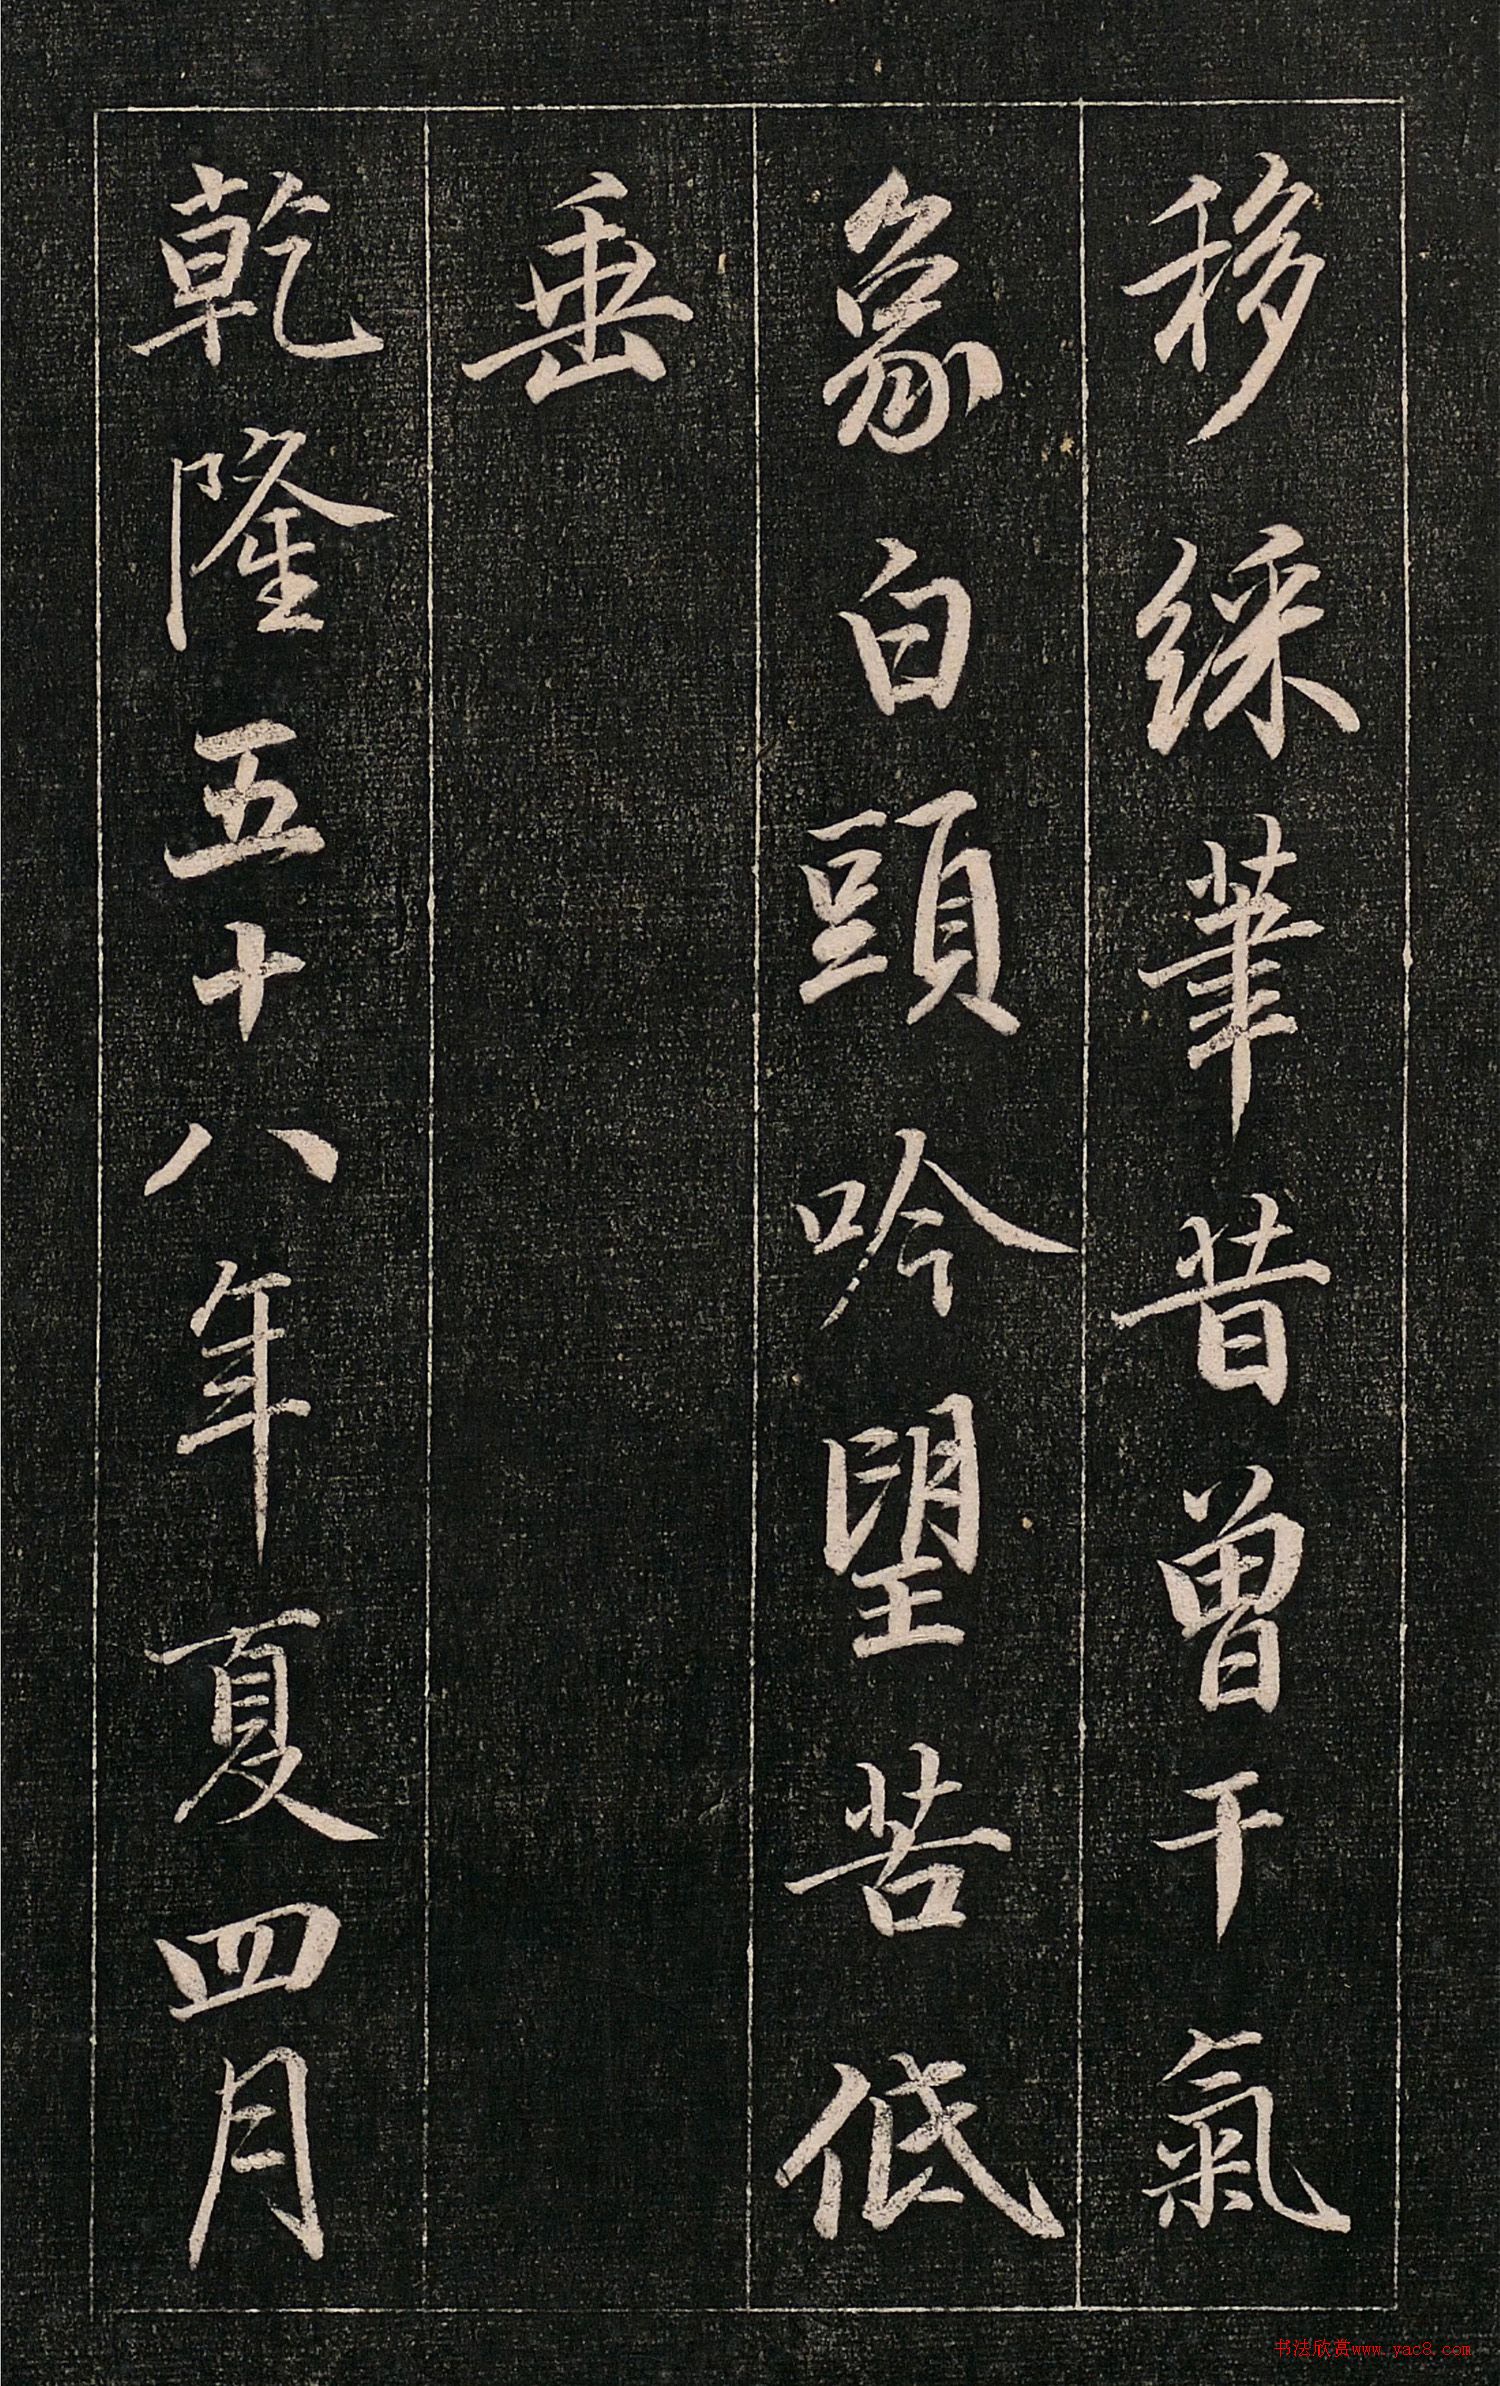 移綵筆昔曾干氣
象白頭吟望苦低
垂
乾隆五十八年夏四月
书法欣赏www.yac8.com